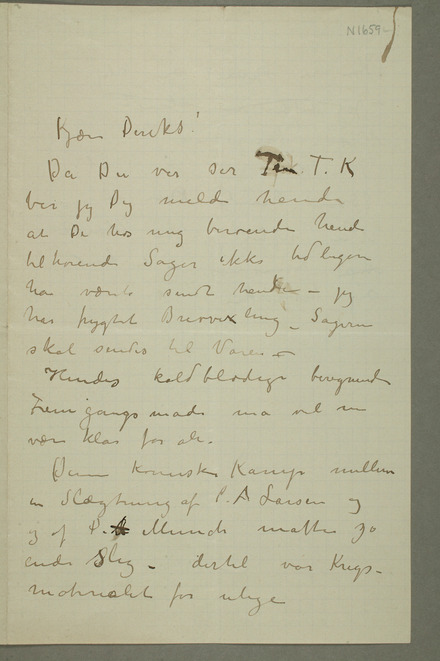 N1659-
Kjære Direks!
Da Du var der T. K
ber jeg Dig melde hende
at De hos mig beroende hende
tilhørende Sager ikke tidligere
har været sendt – jeg
har frygtet Brevvexling – Sagerne
skal sendes til
Hendes koldblodige beregnende
Fremgangsmåde må vel nu
være klar for alle.
Denne komiske Kamp mellem
en Slægtning af P. A Larsen og
og af P. A Munch måtte jo
ende slig – dertil var Krigs-
materialet for ulige